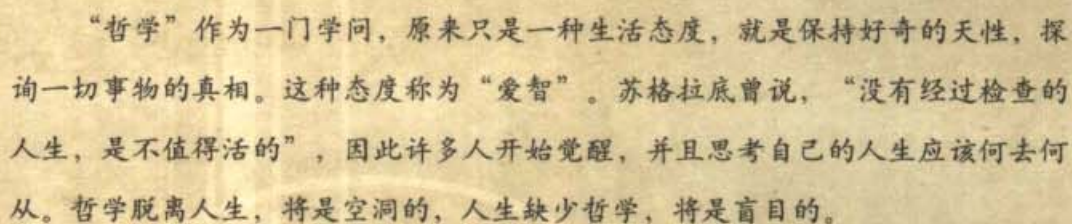 “哲学”作为一门学问，原来只是一种生活态度，就是保持好奇的天性，探
询一切事物的真相。这种态度称为“爱智”。苏格拉底曾说，“没有经过检查的
人生，是不值得活的”，因此许多人开始觉醒，并且思考自己的人生应该何去何
从。哲学脱离人生，将是空洞的，人生缺少哲学，将是盲目的。